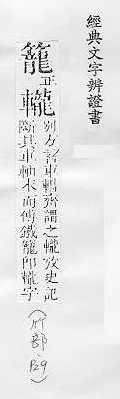 經典文字辨證書
籠正
別方言車轊齊謂之攷史記
斷其車軸末而傅鐵籠即字
(竹部, P29)